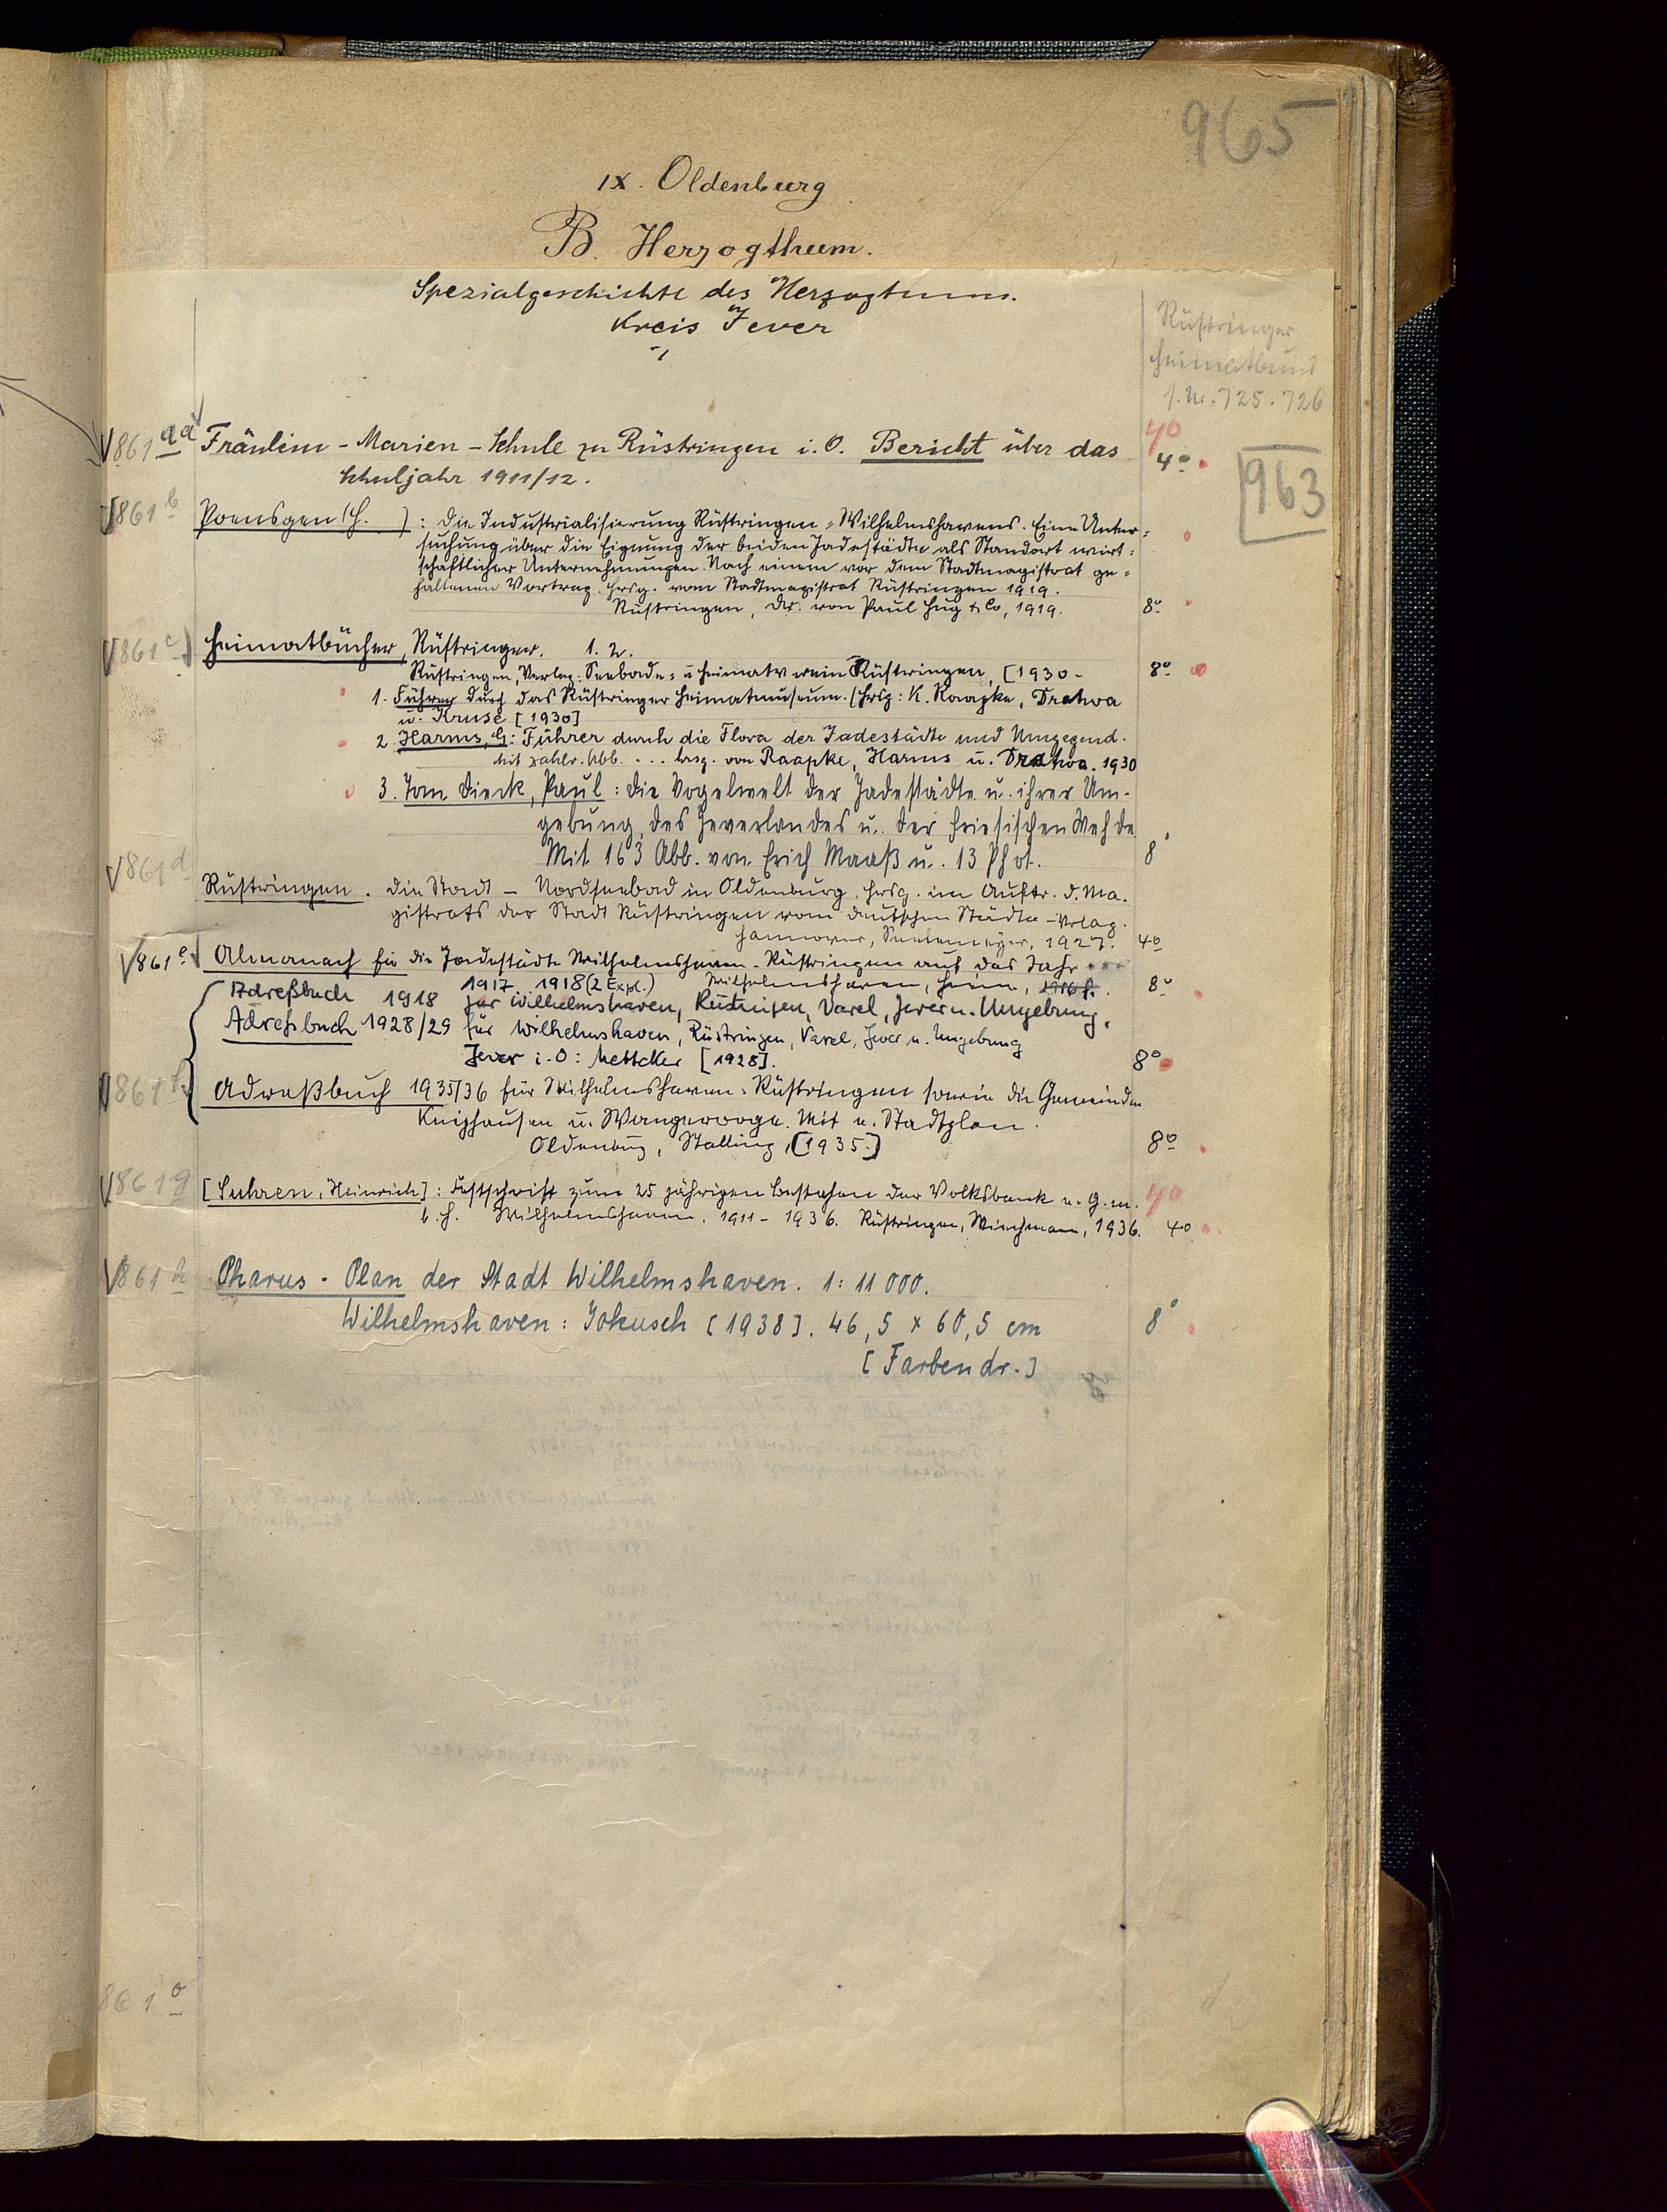 965
IX. Oldenburg
B. Herzogthum.
Spezialgeschichte des Herzogtums.
Kreis Jever
Rüstringer
Heimatbund
s. Nr. 725. 726
861 aa Fräulein-Marien-Schule zu Rüstringen i. O. Bericht über das 40
Schuljahr 1911/12. 4o
963
861 b Poensgen (H. ): Die Industrialisierung Rüstringen-Wilhelmshavens. Eine Unter-
suchung über die Eignung der beiden Jadestädte als Standort wirt-
schaftlicher Unternehmungen. Nach einem vor dem Stadtmagistrat ge-
haltenen Vortrag. Hrsg. vom Stadtmagistrat Rüstringen 1919.
Rüstringen, Dr. von Paul Hug & Co, 1919. 8o
861 c Heimatbücher, Rüstringer. 1. 2.
Rüstringen, Verlag: Seebade- u Heimatverein Rüstringen, [1930- 8o
1. Führer durch das Rüstringer Heimatmuseum. (Hrsg: K. Raapke, Dratwa
u. Kruse [1930]
2. Harms, G: Führer durch die Flora der Jadestädte und Umgegend.
Mit zahlr. Abb. ... hrsg. von Raapke, Harms u. Dratwa. 1930
3. Tom Dieck, Paul: Die Vogelwelt der Jadestädte u. ihrer Um-
gebung, des Jeverlandes u. der Friesischen Wehde
Mit 163 Abb. von Erich Maaß u. 13 Phot. 8°
861 d Rüstringen. Die Stadt - Nordseebad in Oldenburg. Hrsg. im Auftr. d. Ma-
gistrats der Stadt Rüstringen vom Deutschen Städte-Verlag.
Hannover, 1927. 4o
861 e Almanach für die Jadestädte Wilhelmshaven-Rüstringen auf das Jahr ...
1917 1918 (2 Expl.) Wilhelmshaven, 1916 ff. 8o
Adreßbuch 1918 für Wilhelmshaven, Rüstringen, Varel, Jever u. Umgebung.
Adreßbuch 1928/29 für Wilhelmshaven, Rüstringen, Varel, Jever u. Umgebung
Jever i. O: Mettcker [1928]. 8o
861 f Adreßbuch 1935/36 für Wilhelmshaven-Rüstringen sowie die Gemeinden
Kniphausen u. Wangerooge. Mit e. Stadtplan.
Oldenburg, Stalling, [1935.] 8o
861 g [Suhren, Heinrich]: Festschrift zum 25 jährigen Bestehen der Volksbank e. G. m. 40
b. H. Wilhelmshaven. 1911-1936. Rüstringen, 1936. 4o
861 h Pharus-Plan der Stadt Wilhelmshaven. 1: 11 000.
Wilhelmshaven: Lohusch [1938]. 46,5 x 60,5 cm 8°
[Farbendr.]
861 o